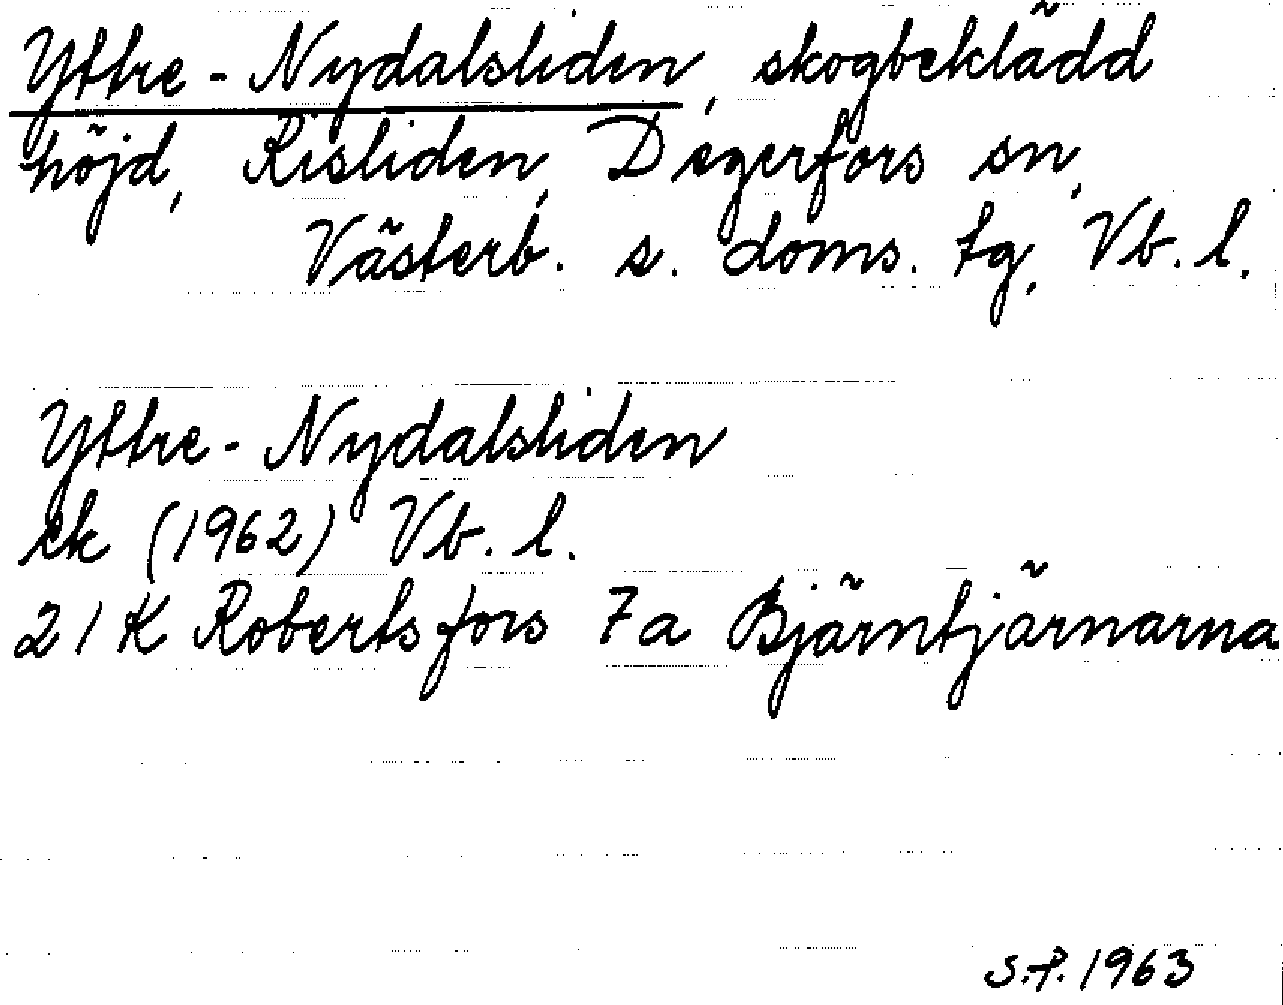 Yttre-Nydalsliden, skogbeklädd
höjd, Risliden, Degerfors sn,
Västerb. s. doms. tg, Vb. l.
Yttre-Nydalsliden
ek (1962) Vb. l.
21K Robertsfors 7a Bjärntjärnarna
S.P. 1963